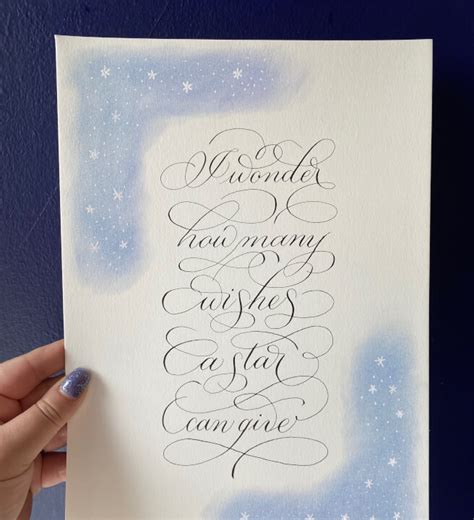 I wonder
how many
wishes
a star
can give